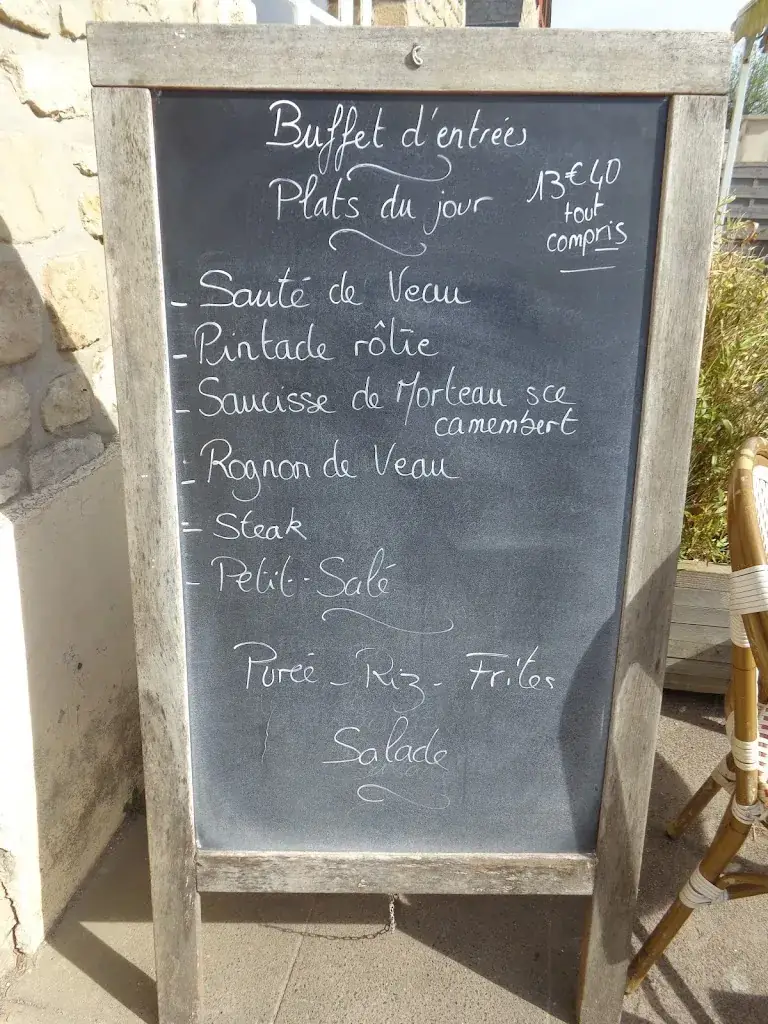 Buffet d'entrées
Plats du jour
13€40
tout
compris
- Sauté de Veau
- Pintade rôtie
- Saucisse de Morteau sce
camembert
- Rognon de Veau
- Steak
- Petit-Salé
Purée - Riz - Frites
Salade